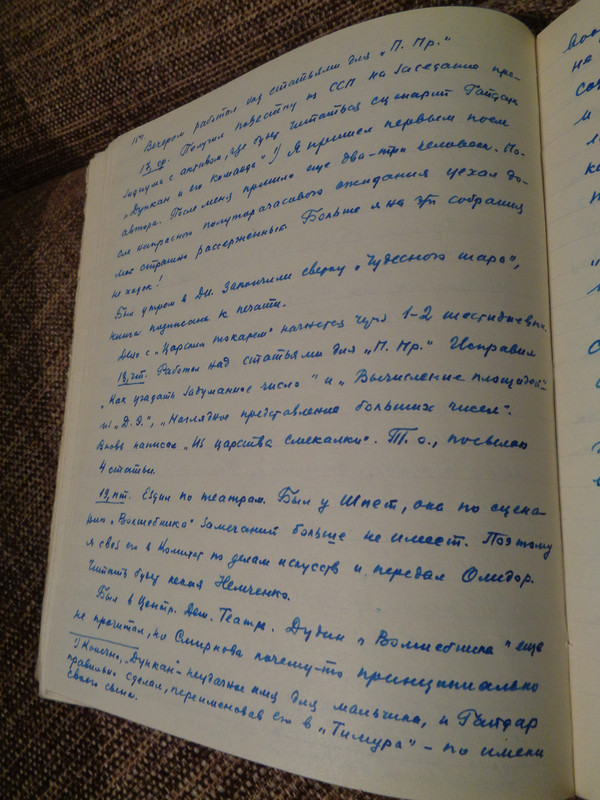 154
Вечером работал над статьями для „П. Пр."
17, ср. Получил повестку из ССП на заседание пре-
зидиума с активом, где будет читаться сценарий Гайдара
„Дункан и его команда" ¹) Я пришел первым после
автора. После меня пришло еще два-три человека. По-
сле напрасного полуторачасового ожидания уехал до-
мой страшно рассерженный. Больше я на эти собрания
не ходок!
Был утром в ДИ. Закончили сверку „Чудесного шара",
книга подписана к печати.
Дело с „Царским токарем" начнется через 1-2 шестидневки.
18, чт. Работал над статьями для „П. Пр." Исправил
„Как угадать задуманное число" и „Вычисление площадей"
из „Д. Э.", „Наглядное представление больших чисел".
Вновь написал „Из царства смекалки". Т. о., посылаю
4 статьи.
19, пт. Ездил по театрам. Был у Шпет, она по сцена-
рию „Волшебника" замечаний больше не имеет. Поэтому
я свез его в Комитет по делам искусств и передал Олидор.
Читать будет некая Немченко.
Был в Центр. Дет. Театре. Дудин „Волшебника" еще
не прочитал, но Смирнова почему-то принципиально
¹) Конечно, „Дункан" – неудачное имя для мальчика, и Гайдар
правильно сделал, переименовав его в „Тимура" – по имени
своего сына.